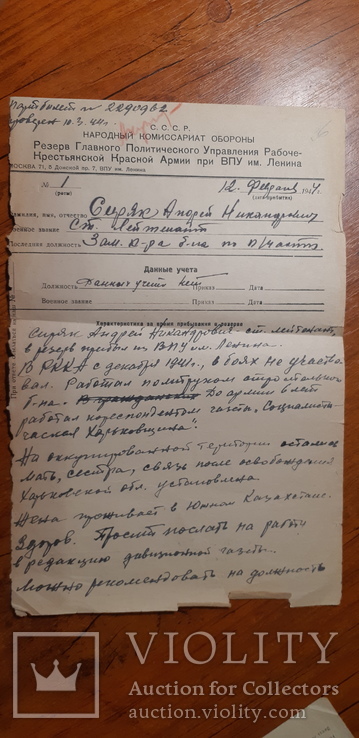 Партбилет №
проверен 10.3.44г.
С. С. С. Р.
НАРОДНЫЙ КОМИССАРИАТ ОБОРОНЫ
Резерв Главного Политического Управления Рабоче-
Крестьянской Красной Армии при ВПУ им. Ленина
МОСКВА 71, Б Донской пр. 7, ВПУ им. Ленина
№ 1 12. Февраля 1944.
Фамилия, имя, отчество Сиряк Андрей Никандрович
Военное звание Ст. Лейтенант
Последняя должность Зам. к-ра б-на по п/части
Данные учета
Должность Данных учета нет Приказ Дата
Военное звание Приказ Дата
Характеристика за время пребывания в резерве
Сиряк Андрей Никандрович ст. лейтенант,
в резерв прибыл из ВПУ им. Ленина.
В РККА с декабря 1941г., в боях не участво
вал. Работал политруком строительного
б-на. До армии 8 лет
работал корреспондентом газеты „Социалисти
ческая Харьковщина".
На оккупированной территории остались
мать, сестра, связь после освобождения
Харьковской обл. установлена.
Жена проживает в Южном Казахстане.
Здоров. Просит послать на работу
в редакцию дивизионной газеты.
Можно рекомендовать на должность
VIOLITY
Auction for Collectors
auction.violity.com